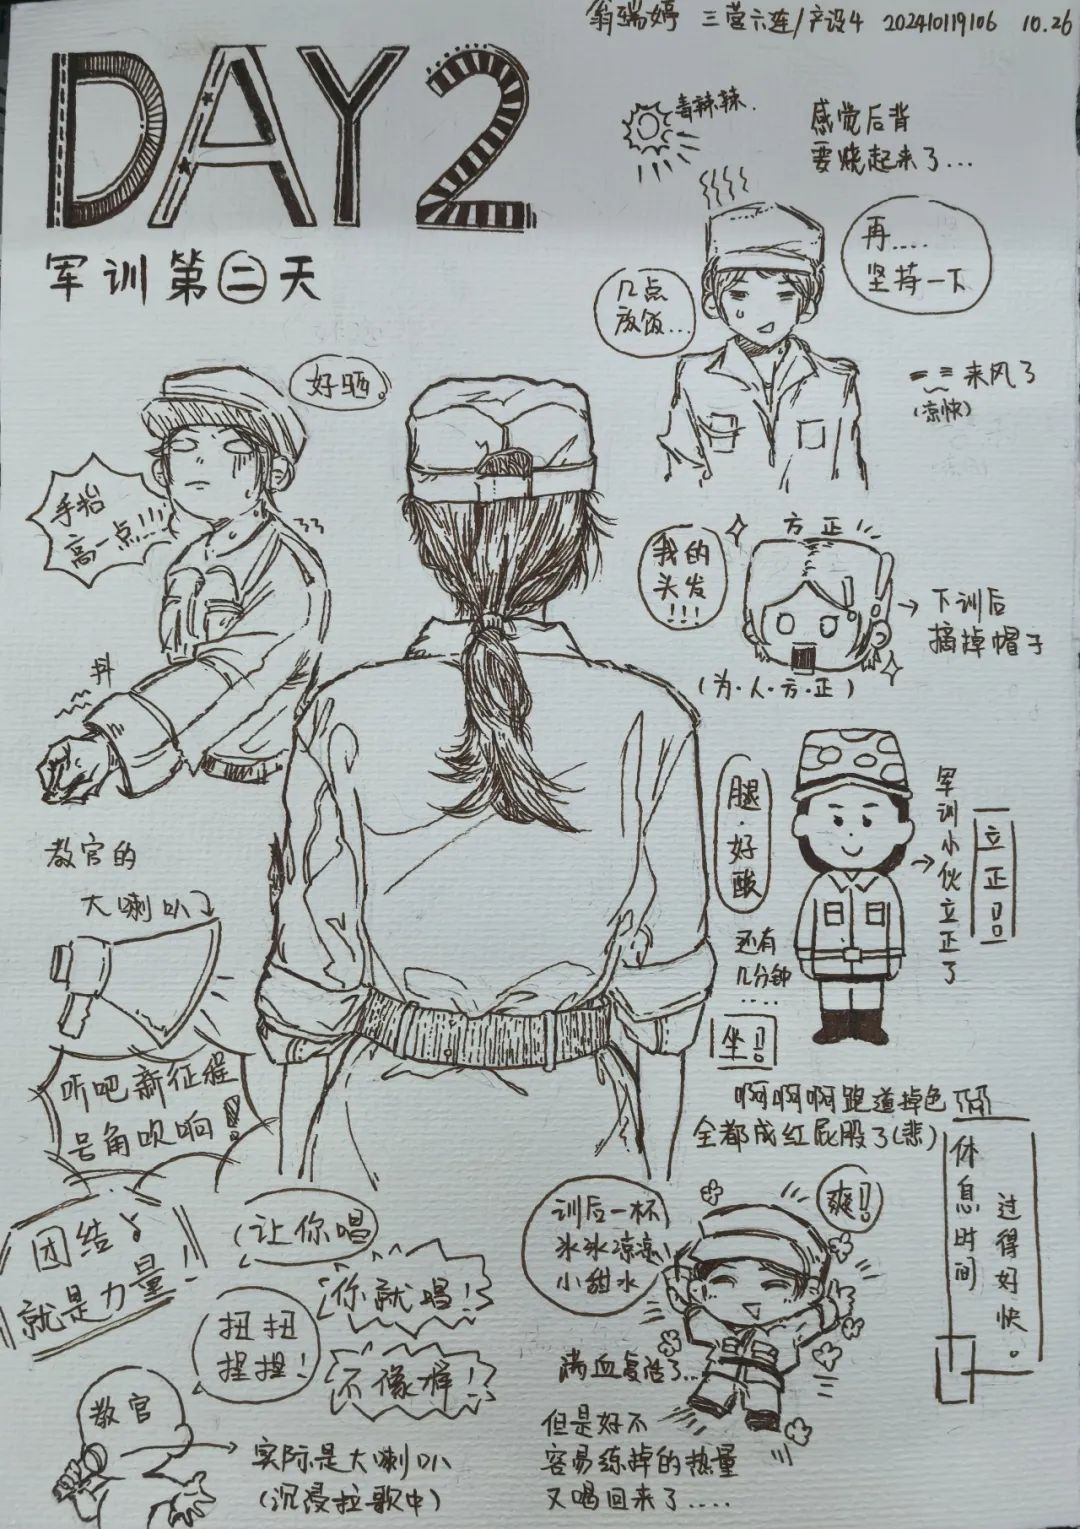 翁瑞婷 三营六连/产设4 202410119106 10.26
DAY2
军训第二天
毒辣辣.
感觉后背
要烧起来了...
再....
坚持一下
几点
放饭...
来风了
(凉快)
好晒。
手抬
高一点!!!
抖
我的
头发
!!!
方正
下训后
摘掉帽子
(为·人·方·正)
腿·好酸
还有
几分钟
....
坐!!
军训小伙立正了
立正!!
教官的
大喇叭
听吧新征程
号角吹响!
啊啊啊跑道掉色
全都成红屁股了(悲)
休息时间
过得好快。
团结
就是力量!
让你唱
你就唱!
扭扭
捏捏!
不像样!
教官
实际是大喇叭
(沉浸拉歌中)
训后一杯
冰冰凉凉
小甜水
爽!!
满血复活了...
但是好不
容易练掉的热量
又喝回来了....